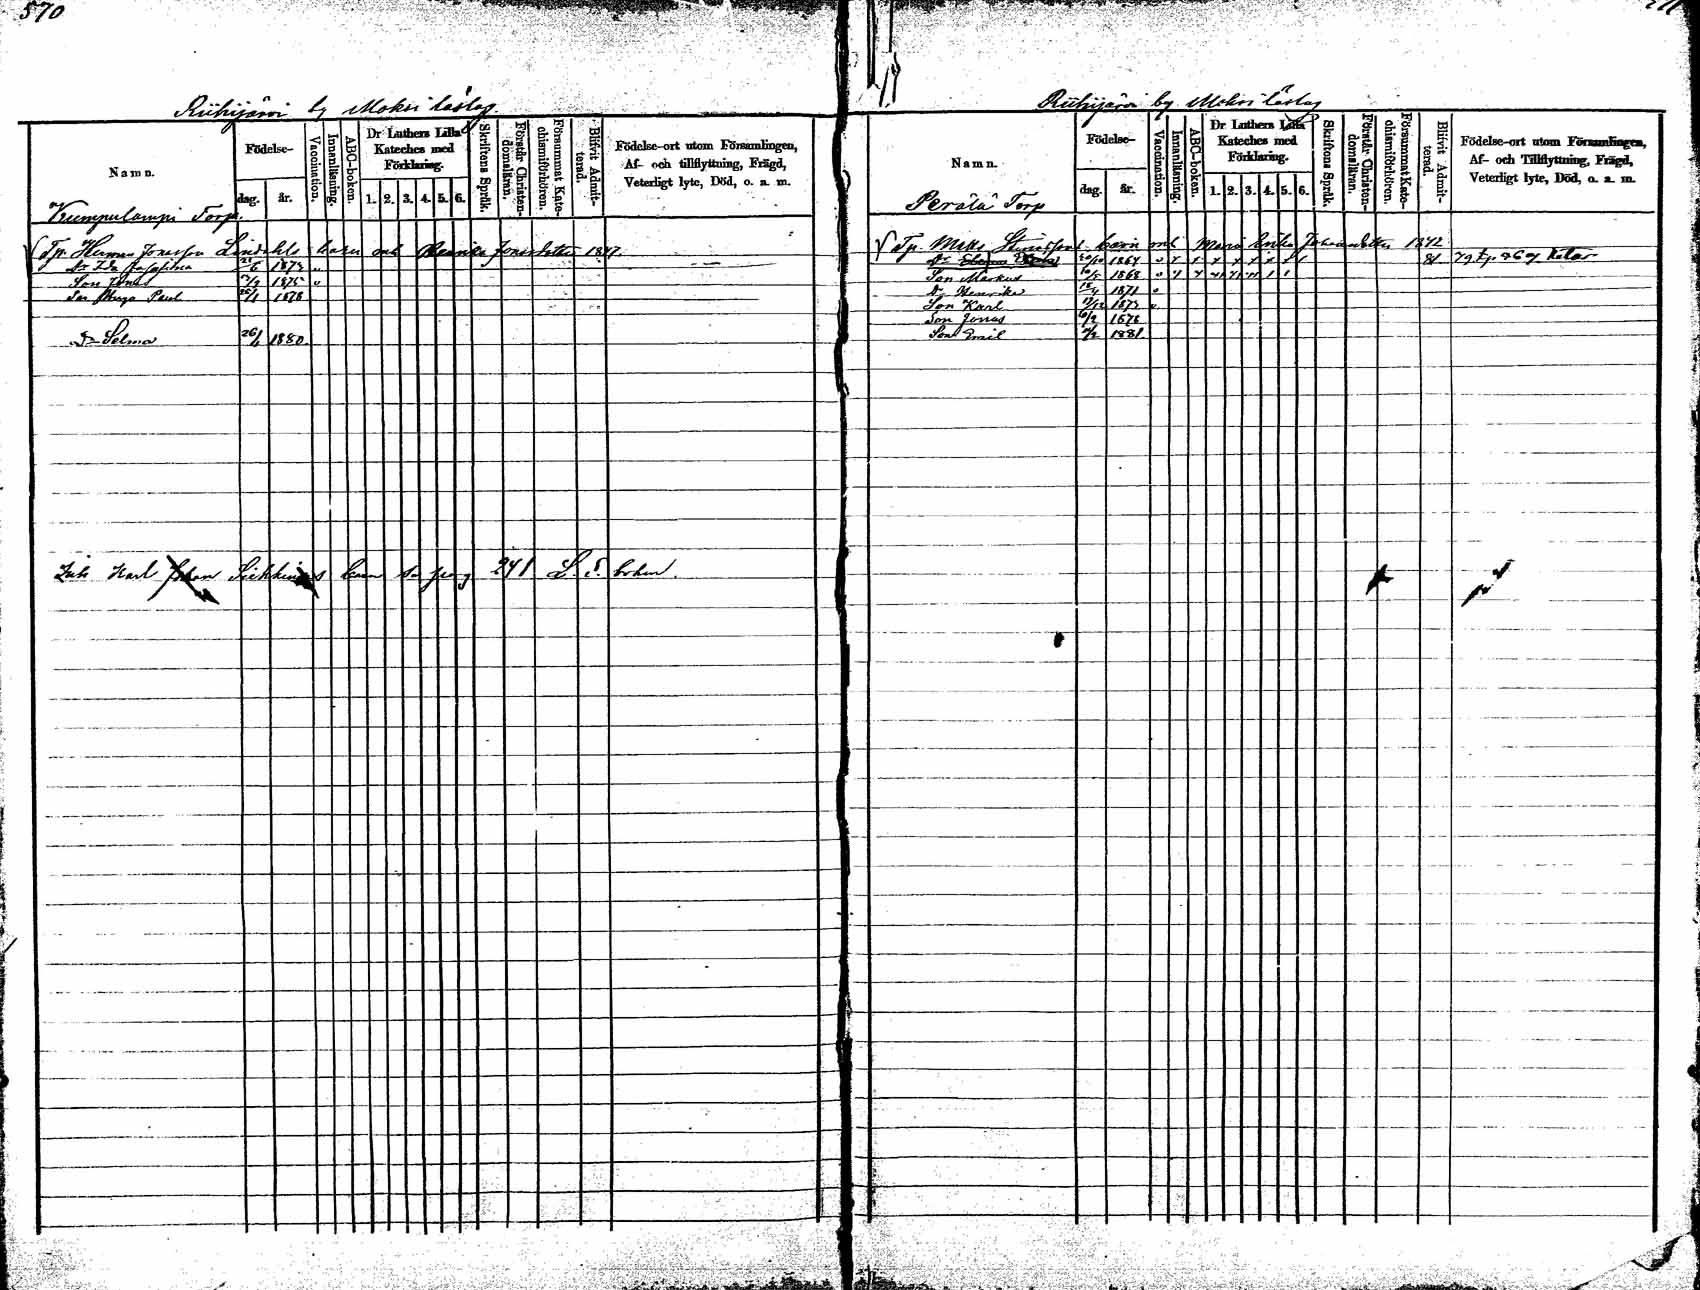 570
Riihijärvi by Moksi läslag.
Namn.
Födelse-
dag.
år.
Vaccination.
Innanläsning.
ABC-boken.
Dr Luthers Lilla
Kateches med
Förklaring.
1. 2. 3. 4. 5. 6.
Skriftens Språk.
Förstår Christen-
domsläran.
Försummat Kate-
chismiförhören.
Blifvit Admit-
terad.
Födelse-ort utom Församlingen,
Af- och tillflyttning, Frägd,
Veterligt lyte, Död, o. a. m.
Kumpulampi Torp.
Tp. Herman Jonasson Lindahls barn mb Jonasdotter 1847.
Dr Ida Josefina 1873 "
Son Jonas 1875 "
Son Hugo Paul 1878
Dr Selma 26/1 1880.
Karl Johan barn pag 241 L. T. boken.
Riihijärvi by Moksi läslag
Namn.
Födelse-
dag.
år.
Vaccination.
Innanläsning.
ABC-boken.
Dr Luthers Lilla
Kateches med
Förklaring.
1. 2. 3. 4. 5. 6.
Skriftens Språk.
Förstår Christen-
domsläran.
Försummat Kate-
chismiförhören.
Blifvit Admit-
terad.
Födelse-ort utom Församlingen,
Af- och Tillflyttning, Frägd,
Veterligt lyte, Död, o. a. m.
Perälä Torp
Tp. Mats barn mb Maria Johansdotter 1842
Dr 20/10 1864 81 79
Son Markus 1868
Dr Henrika 1871 "
Son Karl 1873 "
Son Jonas 1878
Son Emil 1881.